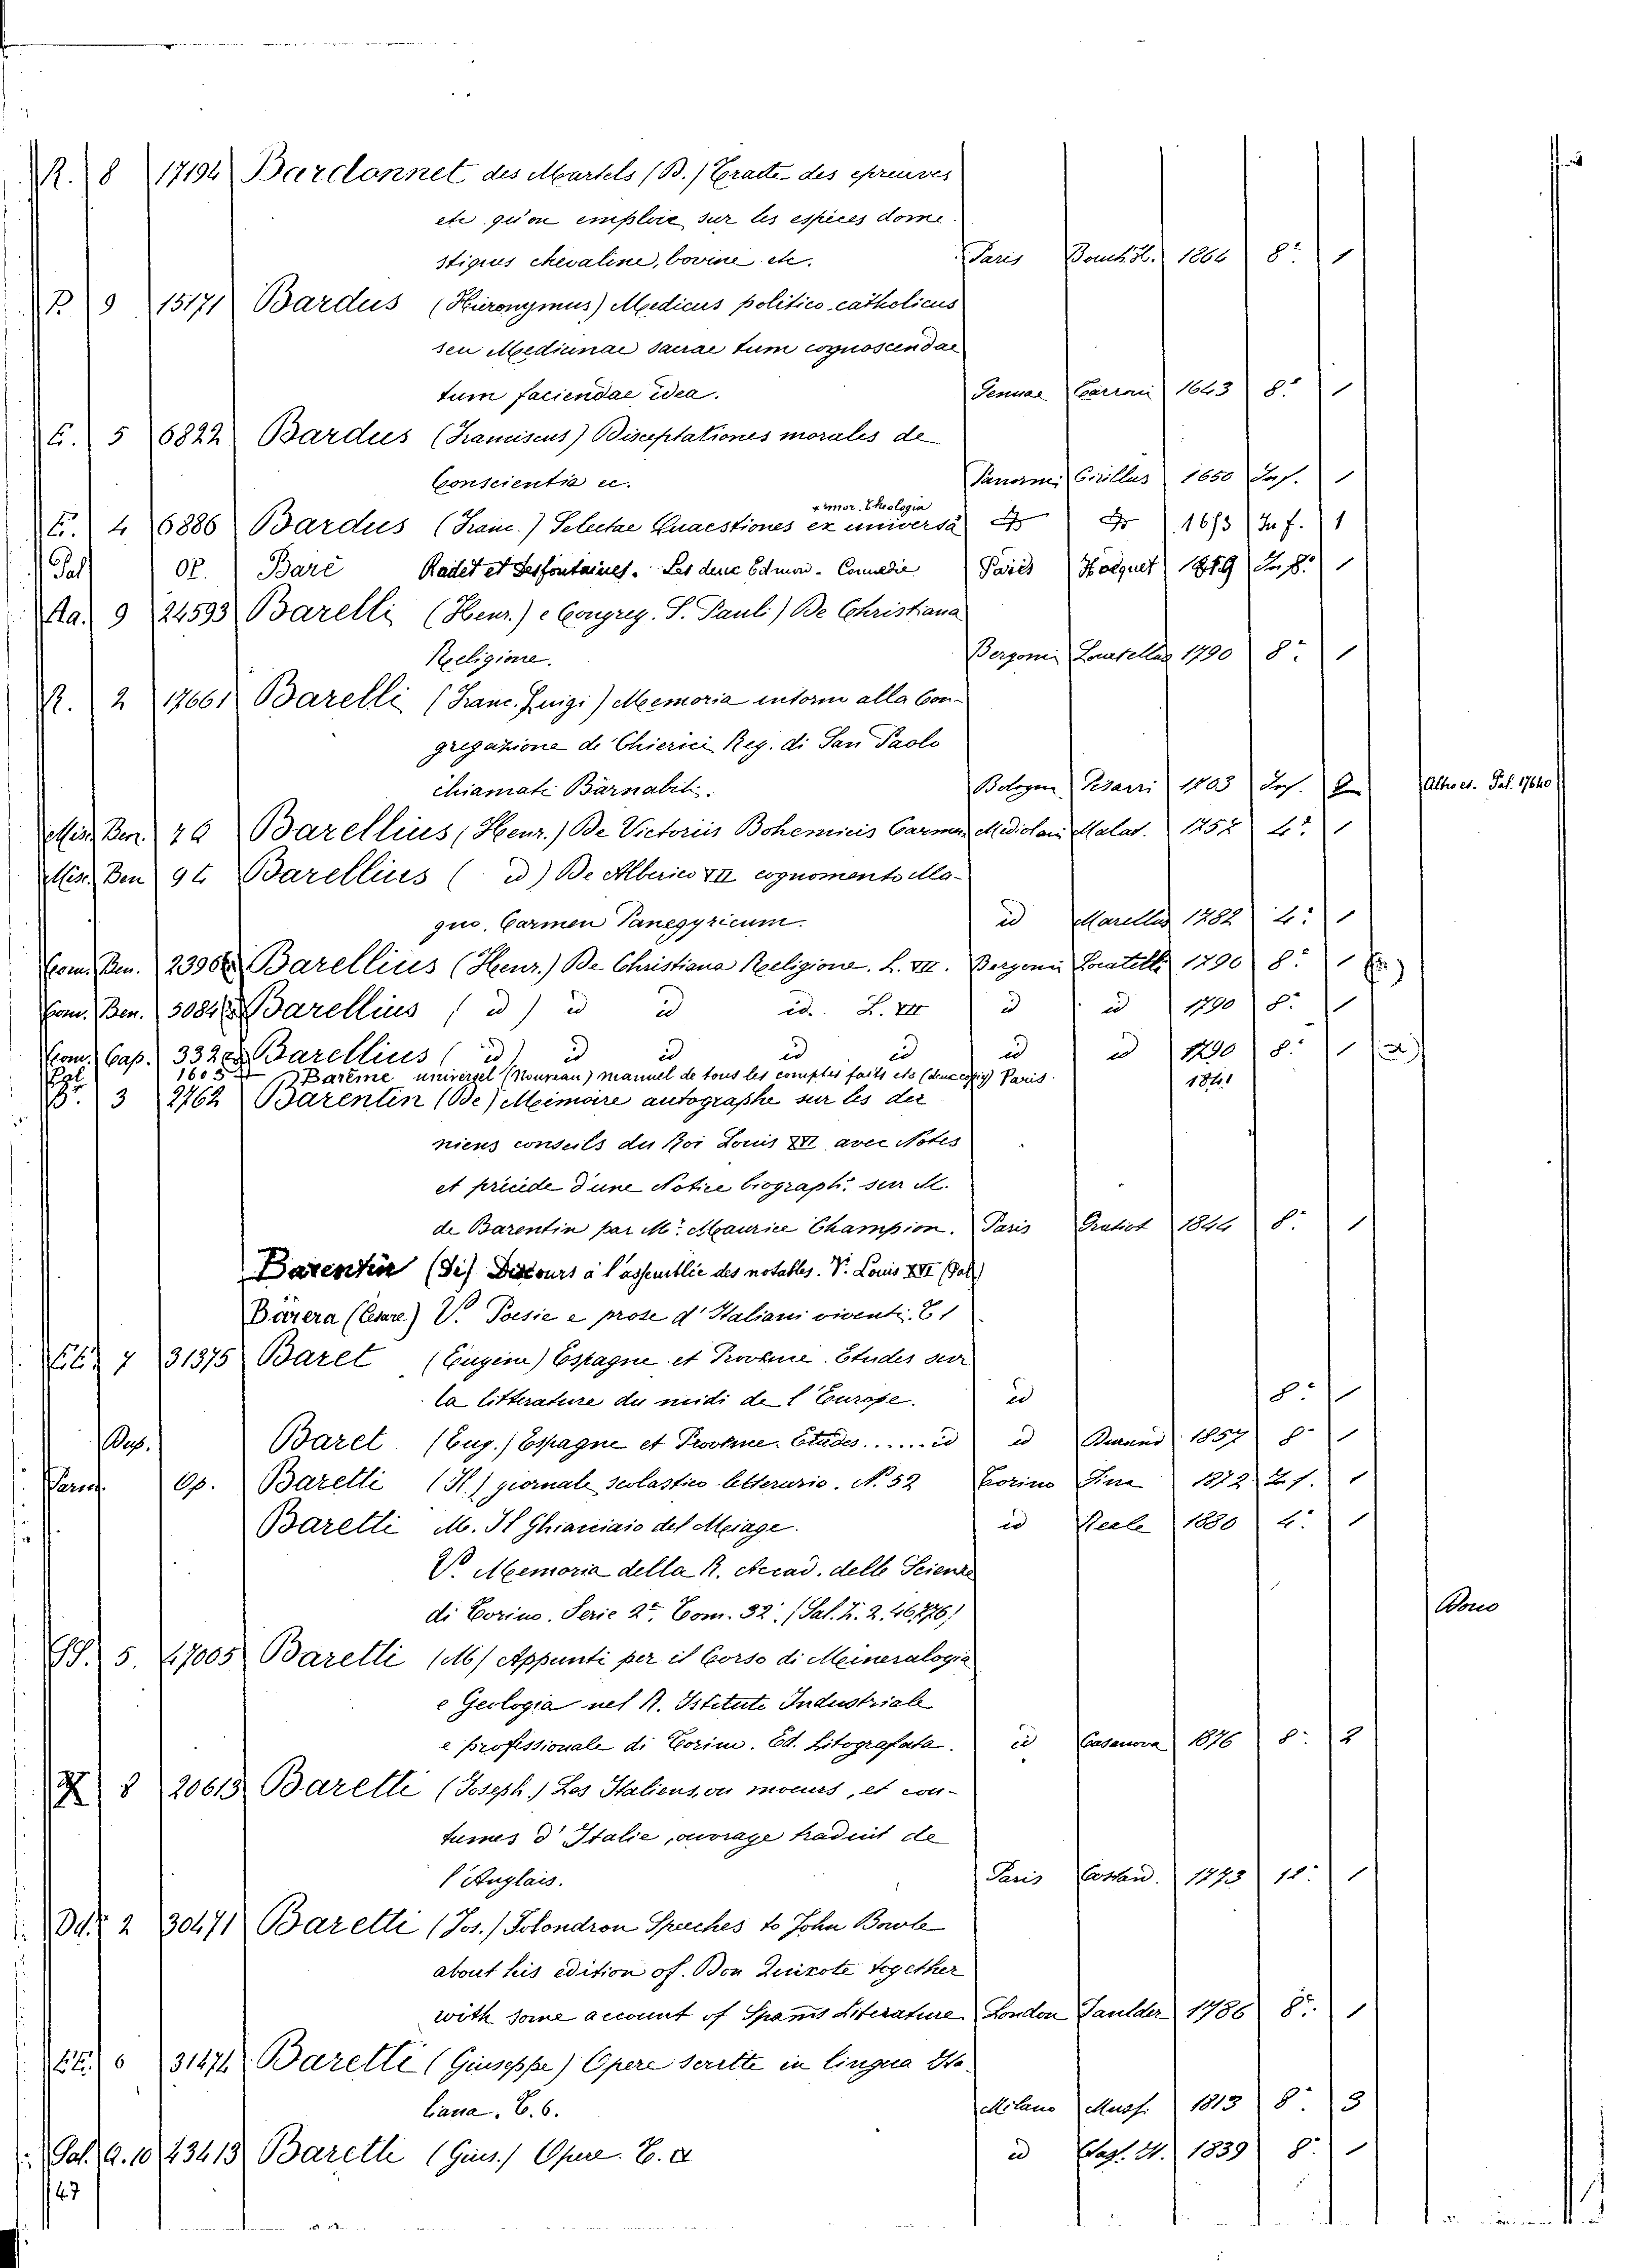 R. 8 17194 Bardonnet des Martels (B.) Traité des épreuves
etc qu'on emploie sur les espèces dome
stiques chevaline, bovine etc. Paris 8° 1
P 9 15171 Bardus (Hieronymus) Medicus politico-catholicus
seu Medicinae sacrae tum cognoscendae
tum faciendae idea. Genuae 1643 8° 1
E. 5 6822 Bardus (Franciscus) Disceptationes morales de
Conscientia ec. Panormi Cirillus 1650 In f. 1
+ mor. Theologia
E. 4 6886 Bardus (Franc.) Selectae Quaestiones ex universâ In f. 1
Pal OP. Baré Radet et Desfontaines. Les deux Edmon. Comedie Paris In 8° 1
Aa. 9 24593 Barelli (Henr.) e Congreg. S. Pauli) De Christiana
Religione. Bergomi Locatellus 1790 8° 1
R. 2 17661 Barelli (Franc. Luigi) Memoria intorno alla Con-
gregazione de Chierici Reg. di San Paolo
chiamati Barnabiti. Bologna Pisarri 1703 Inf. 2 Altro es. Pal. 17640
Misc. Ben. Barellius (Henr.) De Victoriis Bohemicis Carmen Mediolani Malat. 1757 4° 1
Misc. Ben 94 Barellius ( id) De Alberico VII cognomento Ma-
gno. Carmen Panegyricum. id Marellus 1782 4° 1
Com. Ben. Barellius (Henr.) De Christiana Religione. L. VII. Bergomi Locatelli 1790 8° 1
Com. Ben. Barellius ( id ) id id id. L. VII id id 1790 8° 1
Com. Cap. Barellius ( id ) id id id id id id 1790 8° 1 (a)
Pal 1603 Barème universel (Nouveau) manuel de tous les comptes faits etc (deux copies) Paris 1841
3 2762 Barentin (De) Memoire autographe sur les der
niers conseils du Roi Louis XVI avec Notes
et précédé d'une Notice biograph. sur M.
de Barentin par Mr. Maurice Champion. Paris Gratiot 1844 8° 1
Barentin (de) Discours à l'assemblée des notables. V. Louis XVI (Pal)
Barera (Cesare) V. Poesie e prose d'Italiani viventi. T. 1
7 31375 Baret (Eugène) Espagne et Provence. Etudes sur
la litterature du midi de l'Europe. id 8° 1
Dup. Baret (Eug.) Espagne et Provence. Etudes...... id id Durand 1857 8° 1
Op. Baretti (Il) giornale scolastico-letterario. N. 52 Torino 1872 1
Baretti M. Il Ghiacciaio del Miage. id Reale 1880 4° 1
V. Memoria della R. Accad. delle Scienze
di Torino. Serie 2ª. Tom. 32. (Sal. Z. 2. 46,276)
5. 47005 Baretti (M) Appunti per il Corso di Mineralogia Dono
e Geologia nel R. Istituto Industriale
e professionale di Torino. Ed. litografata. id Casanova 1876 8° 2
8 20613 Baretti (Joseph.) Les Italiens, ou moeurs, et cou-
tumes d'Italie, ouvrage traduit de
l'Anglais. Paris Costard. 1773 12° 1
2 30471 Baretti (Jos.) Tolondron Speeches to John Bowle
about his edition of. Don Quixote together
with some account of Spanis Literature London Faulder 1786 8° 1
6 31474 Baretti (Giuseppe) Opere scritte in lingua Ita
liana. T. 6. Milano Mussi 1813 8° 3
Sal. Q. 10 43413 Baretti (Gius.) Opere. T. id 1839 8° 1
47